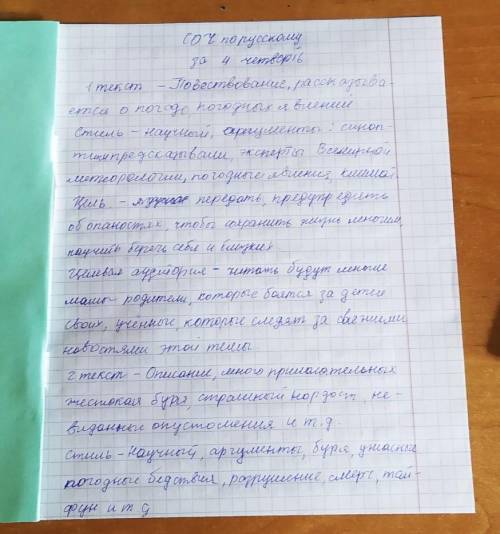 СОЧ по русскому
за 4 четверть
1 текст - Повествование, рассказыва-
ется о погоде, погодных явлений
Стиль - научный, аргументы: синоп-
тики предсказывали, эксперты Всемирной
метеорологии, погодные явления, климат.
Цель - передать, предупредить
об опаностях, чтобы сохранить жизнь многим,
научить беречь себя и близких.
Целевая аудитория - читать будут многие
мамы - родители, которые боятся за детей
своих, учённые, которые следят за свежими
новостями этой темы
2 текст - Описание, много прилогательных
жестокая буря, страшный нордост, не-
виданные опустошения и т.д.
Стиль - Научный, аргументы, буря, ужасные
погодные бедствия, разрушение, смерч, тай-
фун и т д